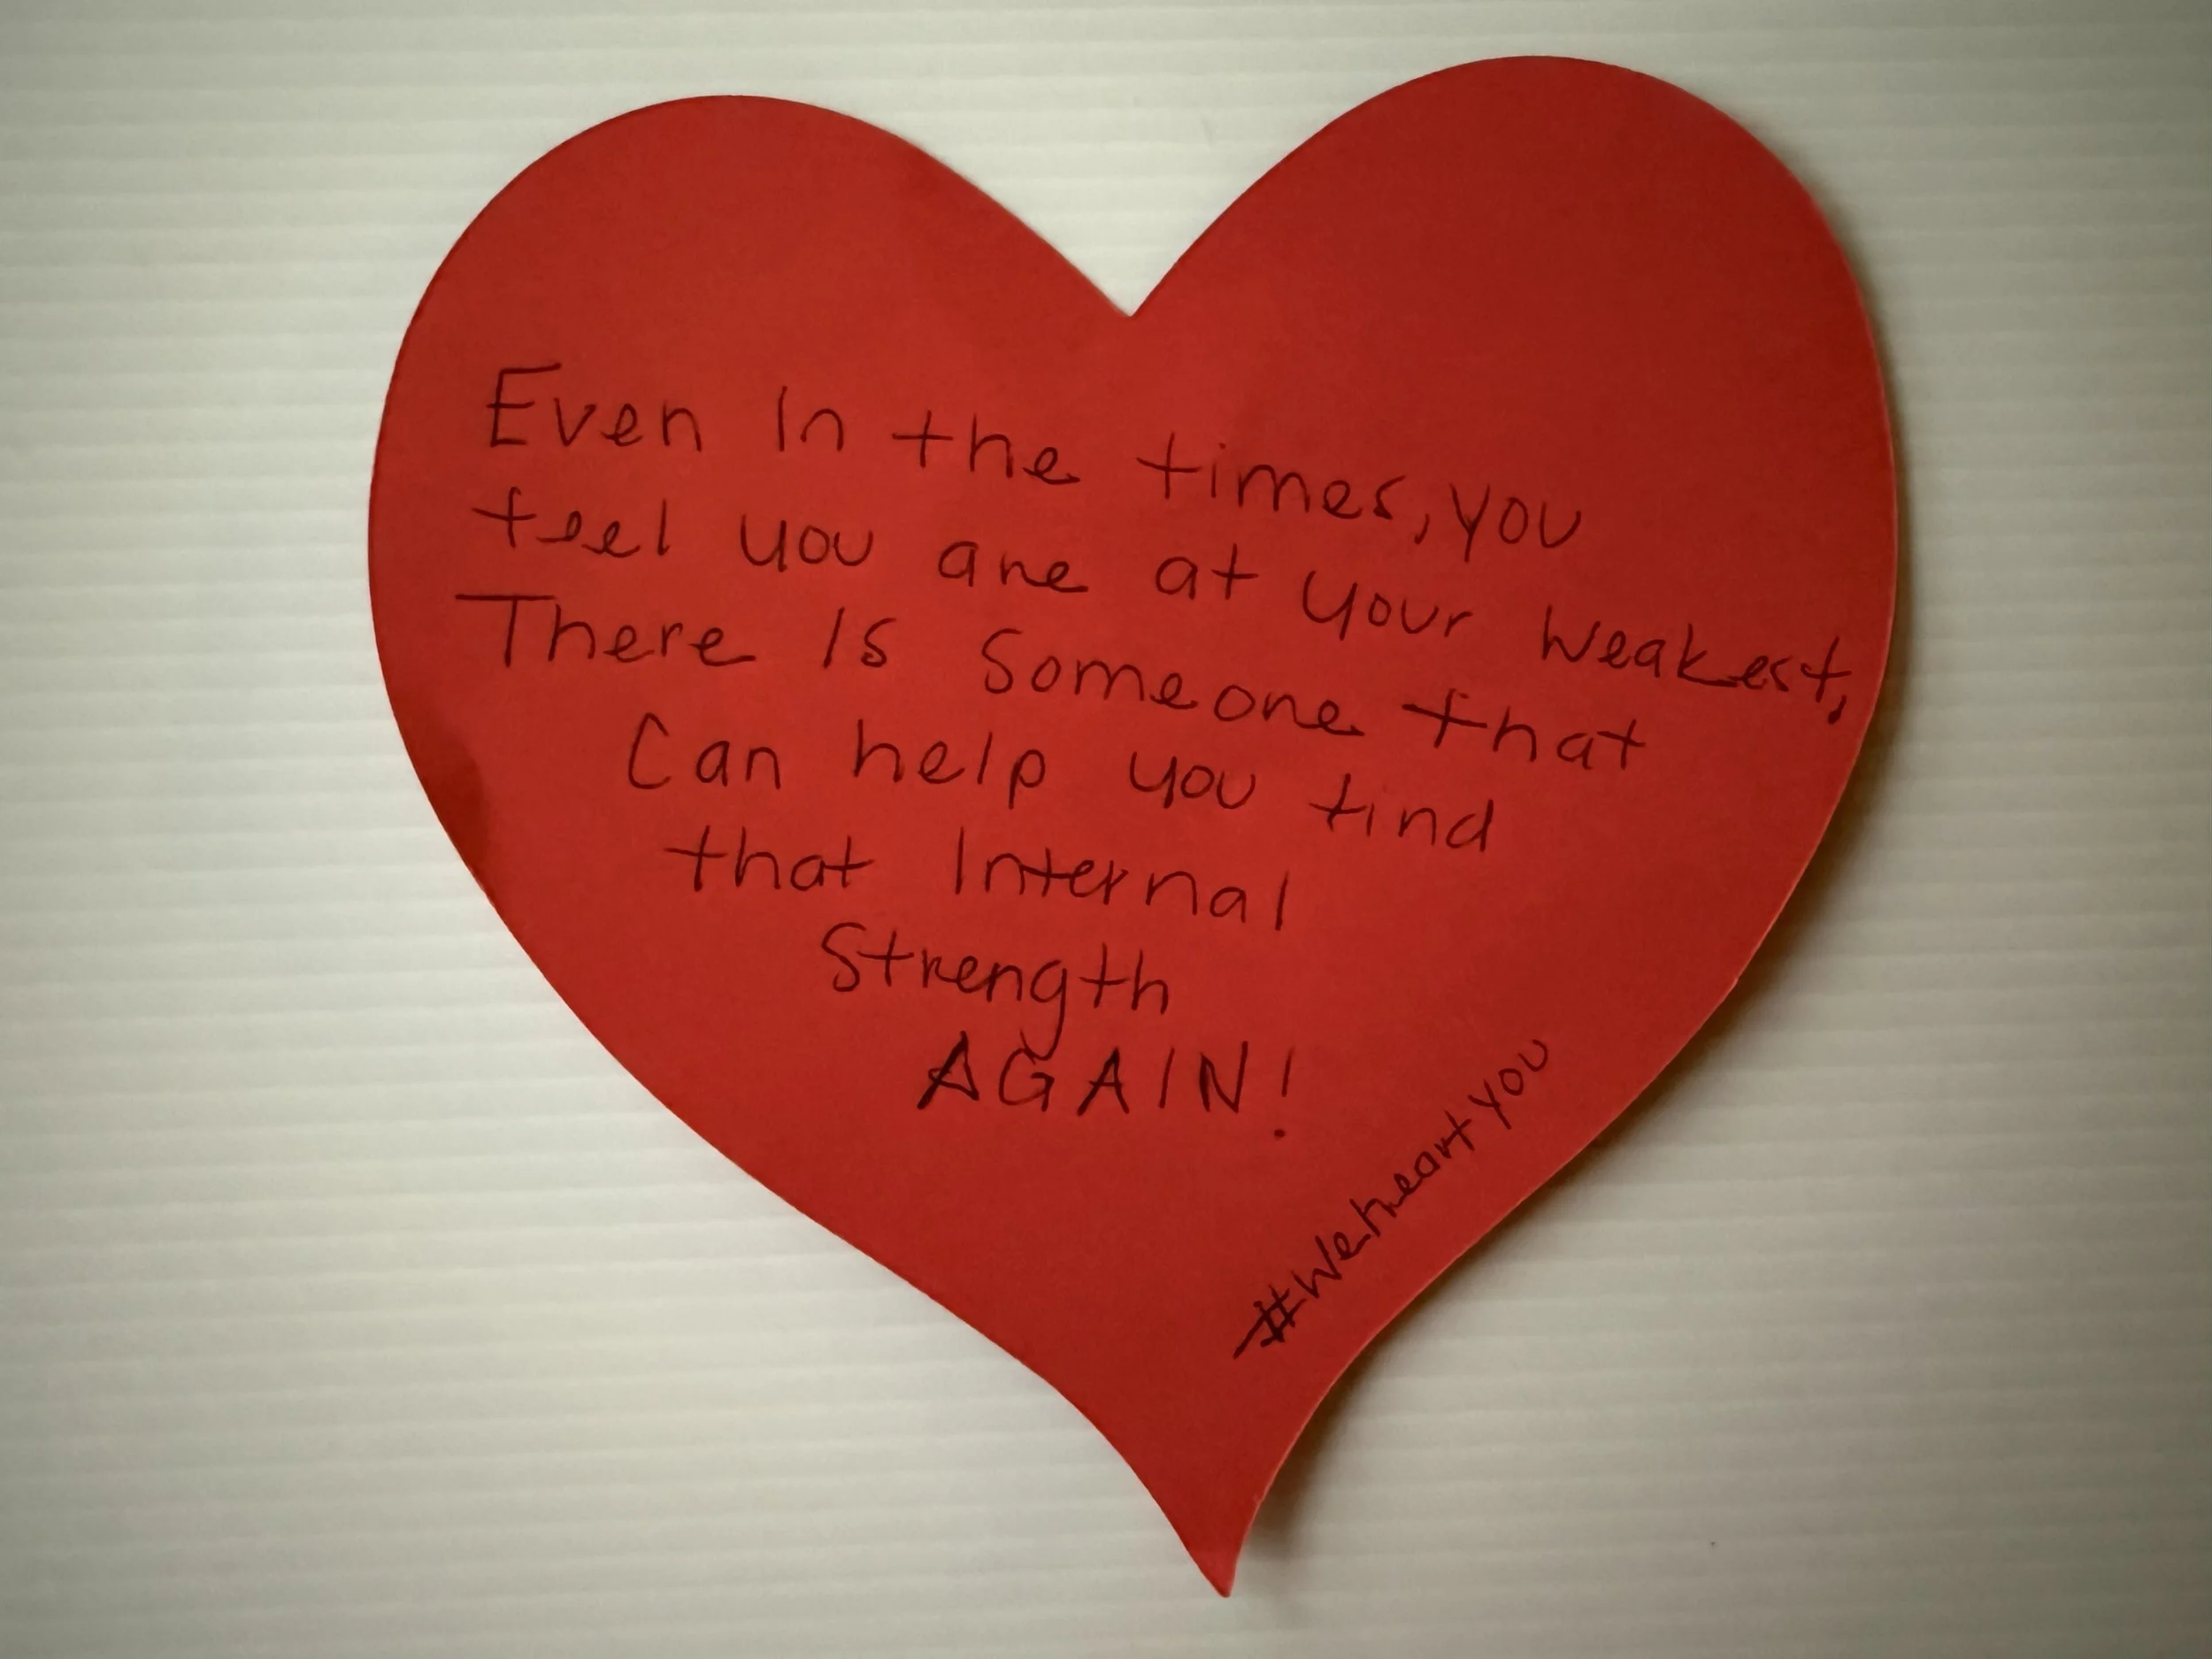 Even In the times, you
feel you are at your weakest,
There Is Someone that
Can help you find
that Internal
Strength
AGAIN!
#Weheartyou